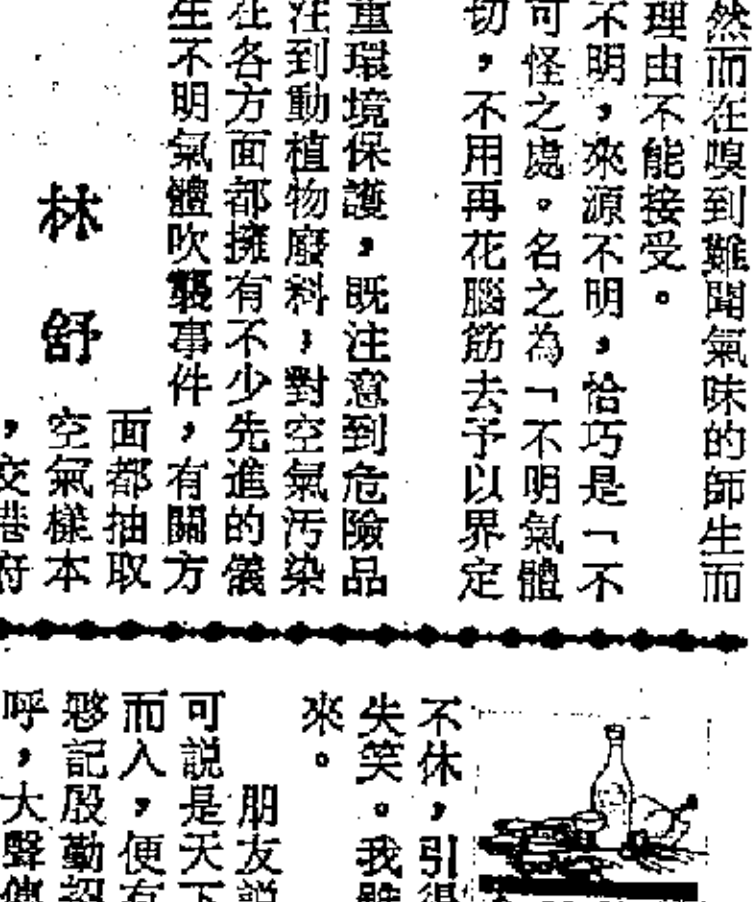 然而在嗅到難聞氣味的師生而
理由不能接受。
不明，來源不明，恰巧是「不
可怪之處。名之為「不明氣體
切，不用再花腦筋去予以界定
重環境保護，既注意到危險品
注到動植物廢料，對空氣污染
在各方面都擁有不少先進的儀
生不明氣體吹襲事件，有關方
面都抽取
空氣樣本
，交港府
林舒
不休，引得
失笑。我雖
來。
朋友說
可說是天下
而入，便有
夥記殷勤招
呼，大聲傳